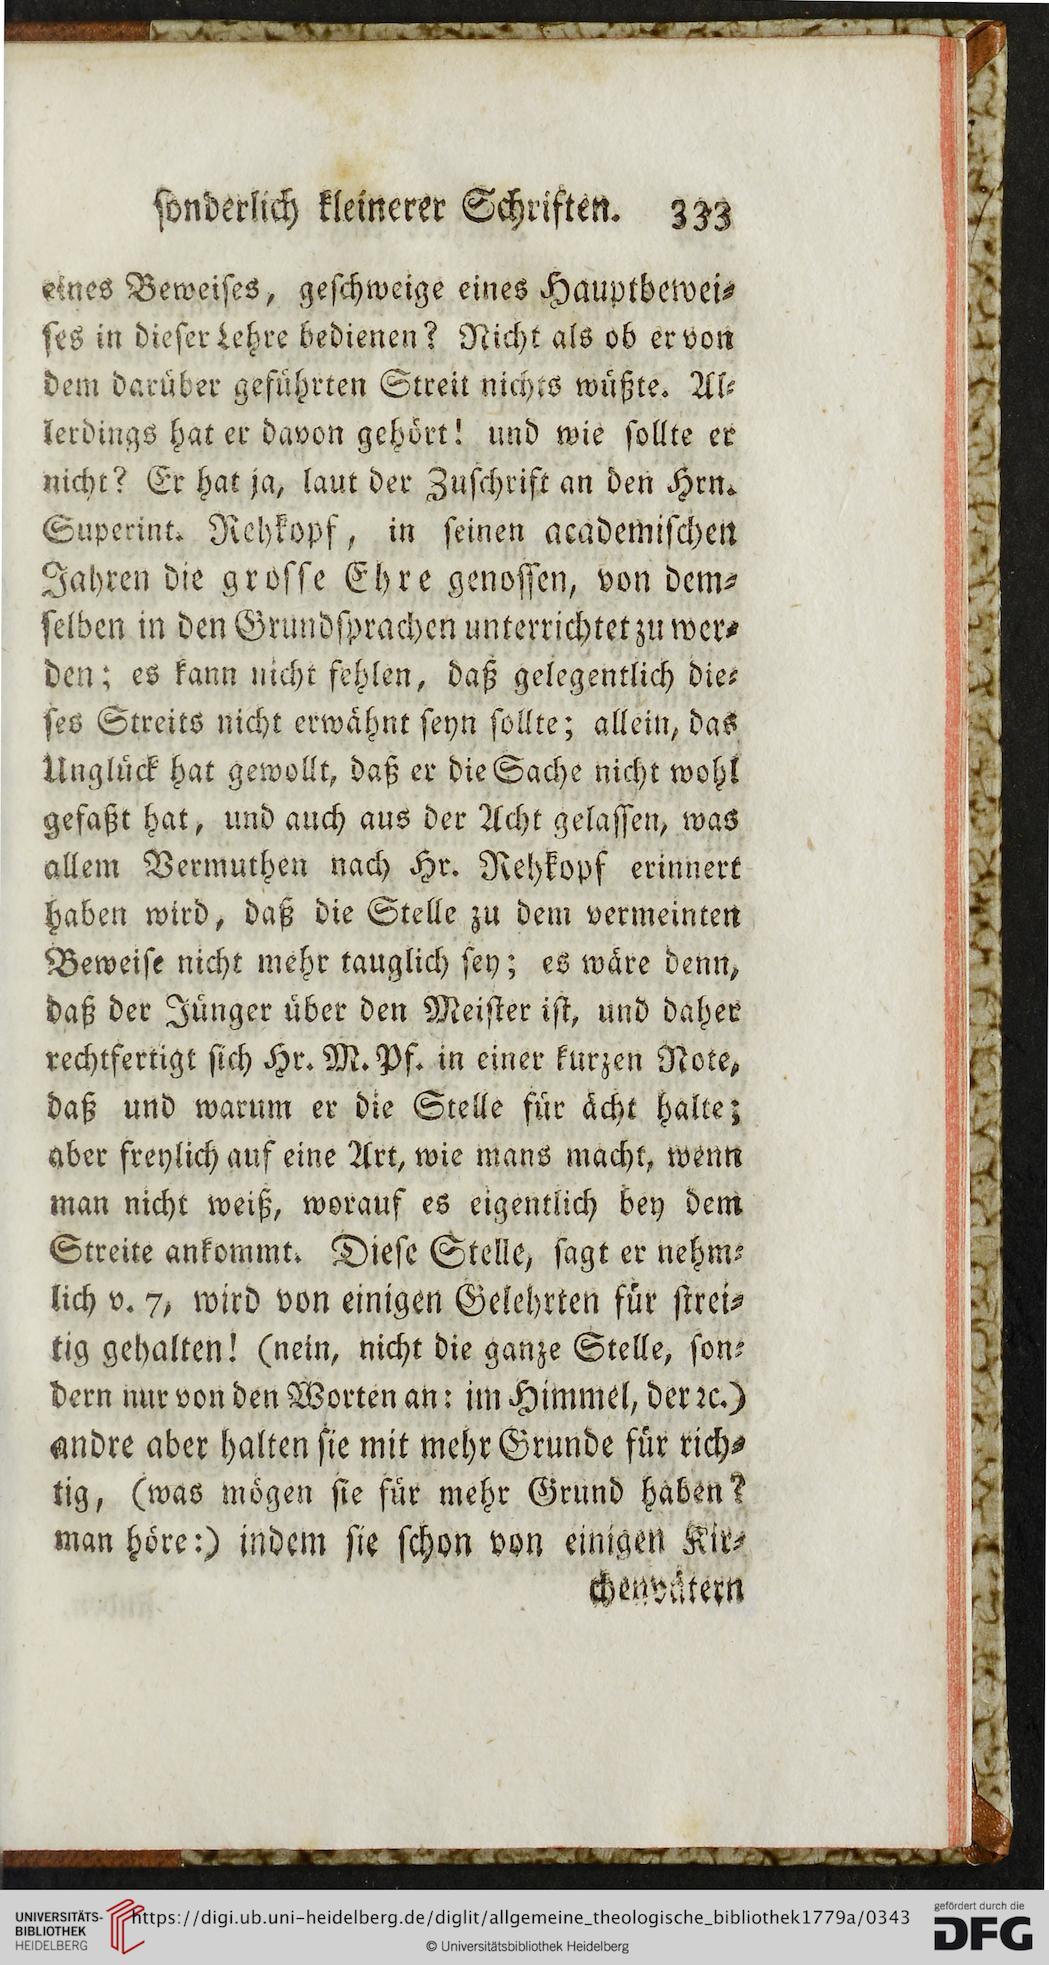 sonderlich kleinerer Schriften. 333
eines Beweises, geschweige eines Hauptbewei-
ses in dieser Lehre bedienen? Nicht als ob er von
dem darüber geführten Streit nichts wüßte. Al-
lerdings hat er davon gehört! und wie sollte er
nicht? Er hat ja, laut der Zuschrift an den Hrn.
Superint. Rehkopf, in seinen academischen
Jahren die grosse Ehre genossen, von dem-
selben in den Grundsprachen unterrichtet zu wer-
den; es kann nicht fehlen, daß gelegentlich die-
ses Streits nicht erwähnt seyn sollte; allein, das
Unglück hat gewollt, daß er die Sache nicht wohl
gefaßt hat, und auch aus der Acht gelassen, was
allem Vermuthen nach Hr. Rehkopf erinnert
haben wird, daß die Stelle zu dem vermeinten
Beweise nicht mehr tauglich sey; es wäre denn,
daß der Jünger über den Meister ist, und daher
rechtfertigt sich Hr. M. Pf. in einer kurzen Note,
daß und warum er die Stelle für ächt halte;
aber freylich auf eine Art, wie mans macht, wenn
man nicht weiß, worauf es eigentlich bey dem
Streite ankommt. Diese Stelle, sagt er nehm-
lich v. 7, wird von einigen Gelehrten für strei-
tig gehalten! (nein, nicht die ganze Stelle, son-
dern nur von den Worten an: im Himmel, der ꝛc.)
andre aber halten sie mit mehr Grunde für rich-
tig, (was mögen sie für mehr Grund haben?
man höre:) indem sie schon von einigen Kir-
chenvätern
UNIVERSITÄTS-
BIBLIOTHEK
HEIDELBERG
https://digi.ub.uni-heidelberg.de/diglit/allgemeine_theologische_bibliothek1779a/0343
© Universitätsbibliothek Heidelberg
gefördert durch die
DFG